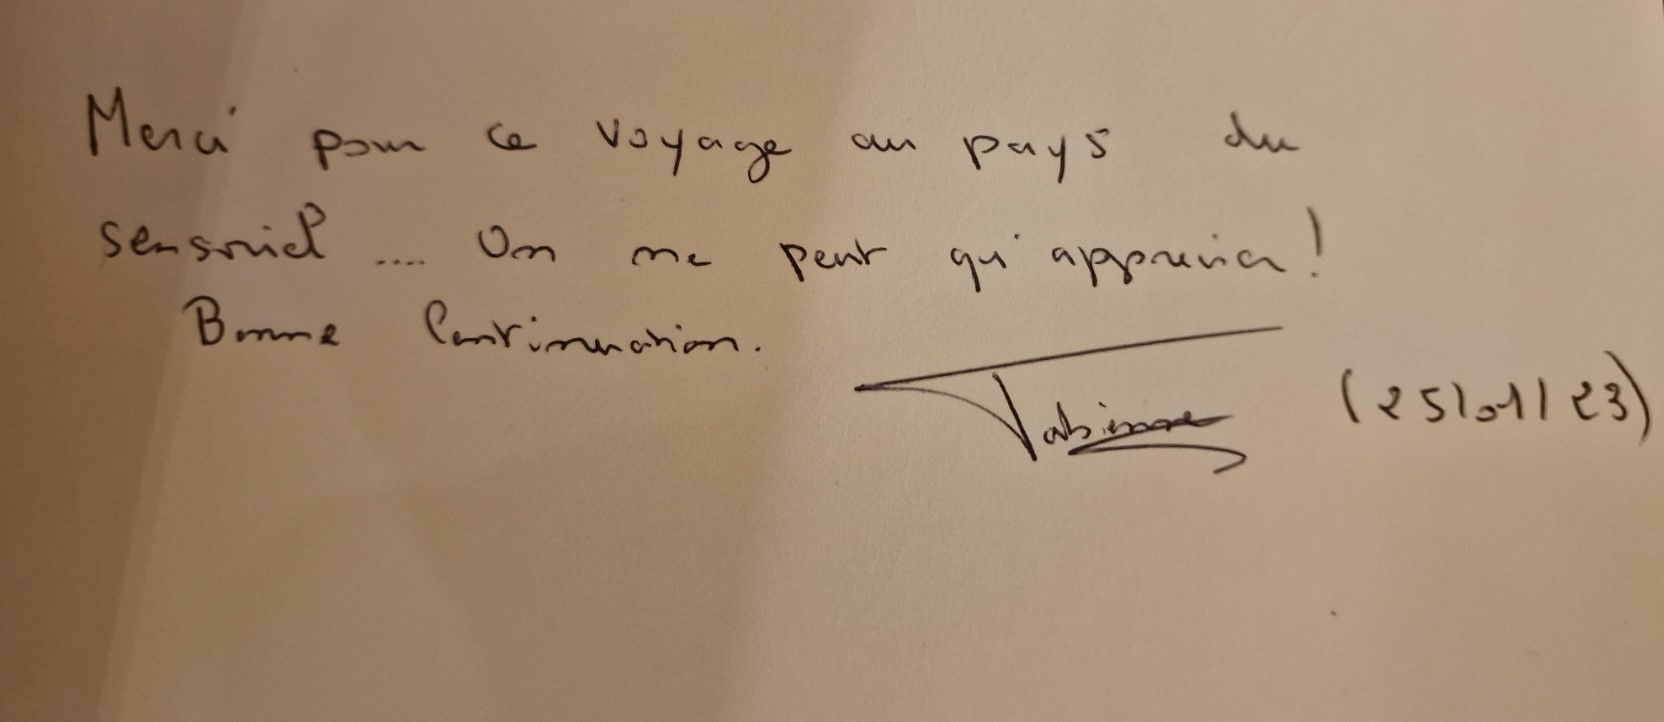 Merci pour ce voyage au pays du
sensoriel .... On ne peut qu'apprécier !
Bonne Continuation.
Fabienne (25/01/23)